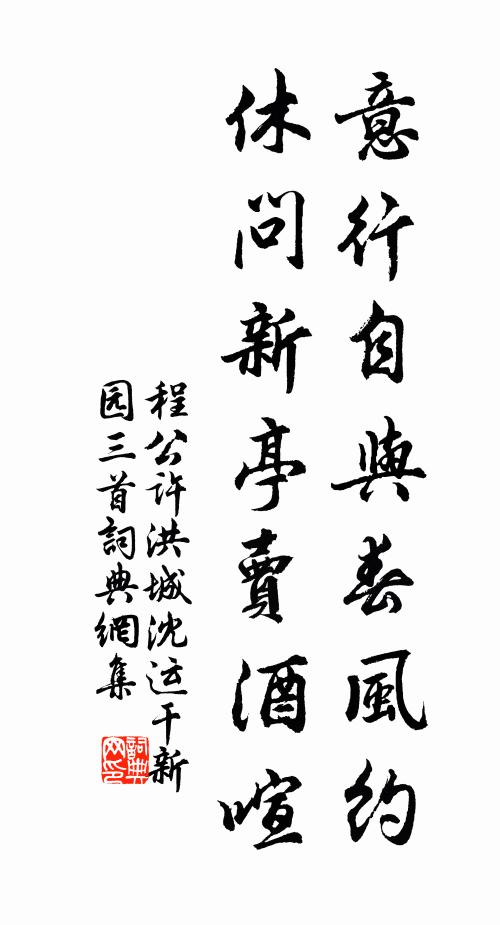 意行自與春風約
休問新亭賣酒喧
程公许洪城沈运干新
园三首詞典網集
詞典
网印